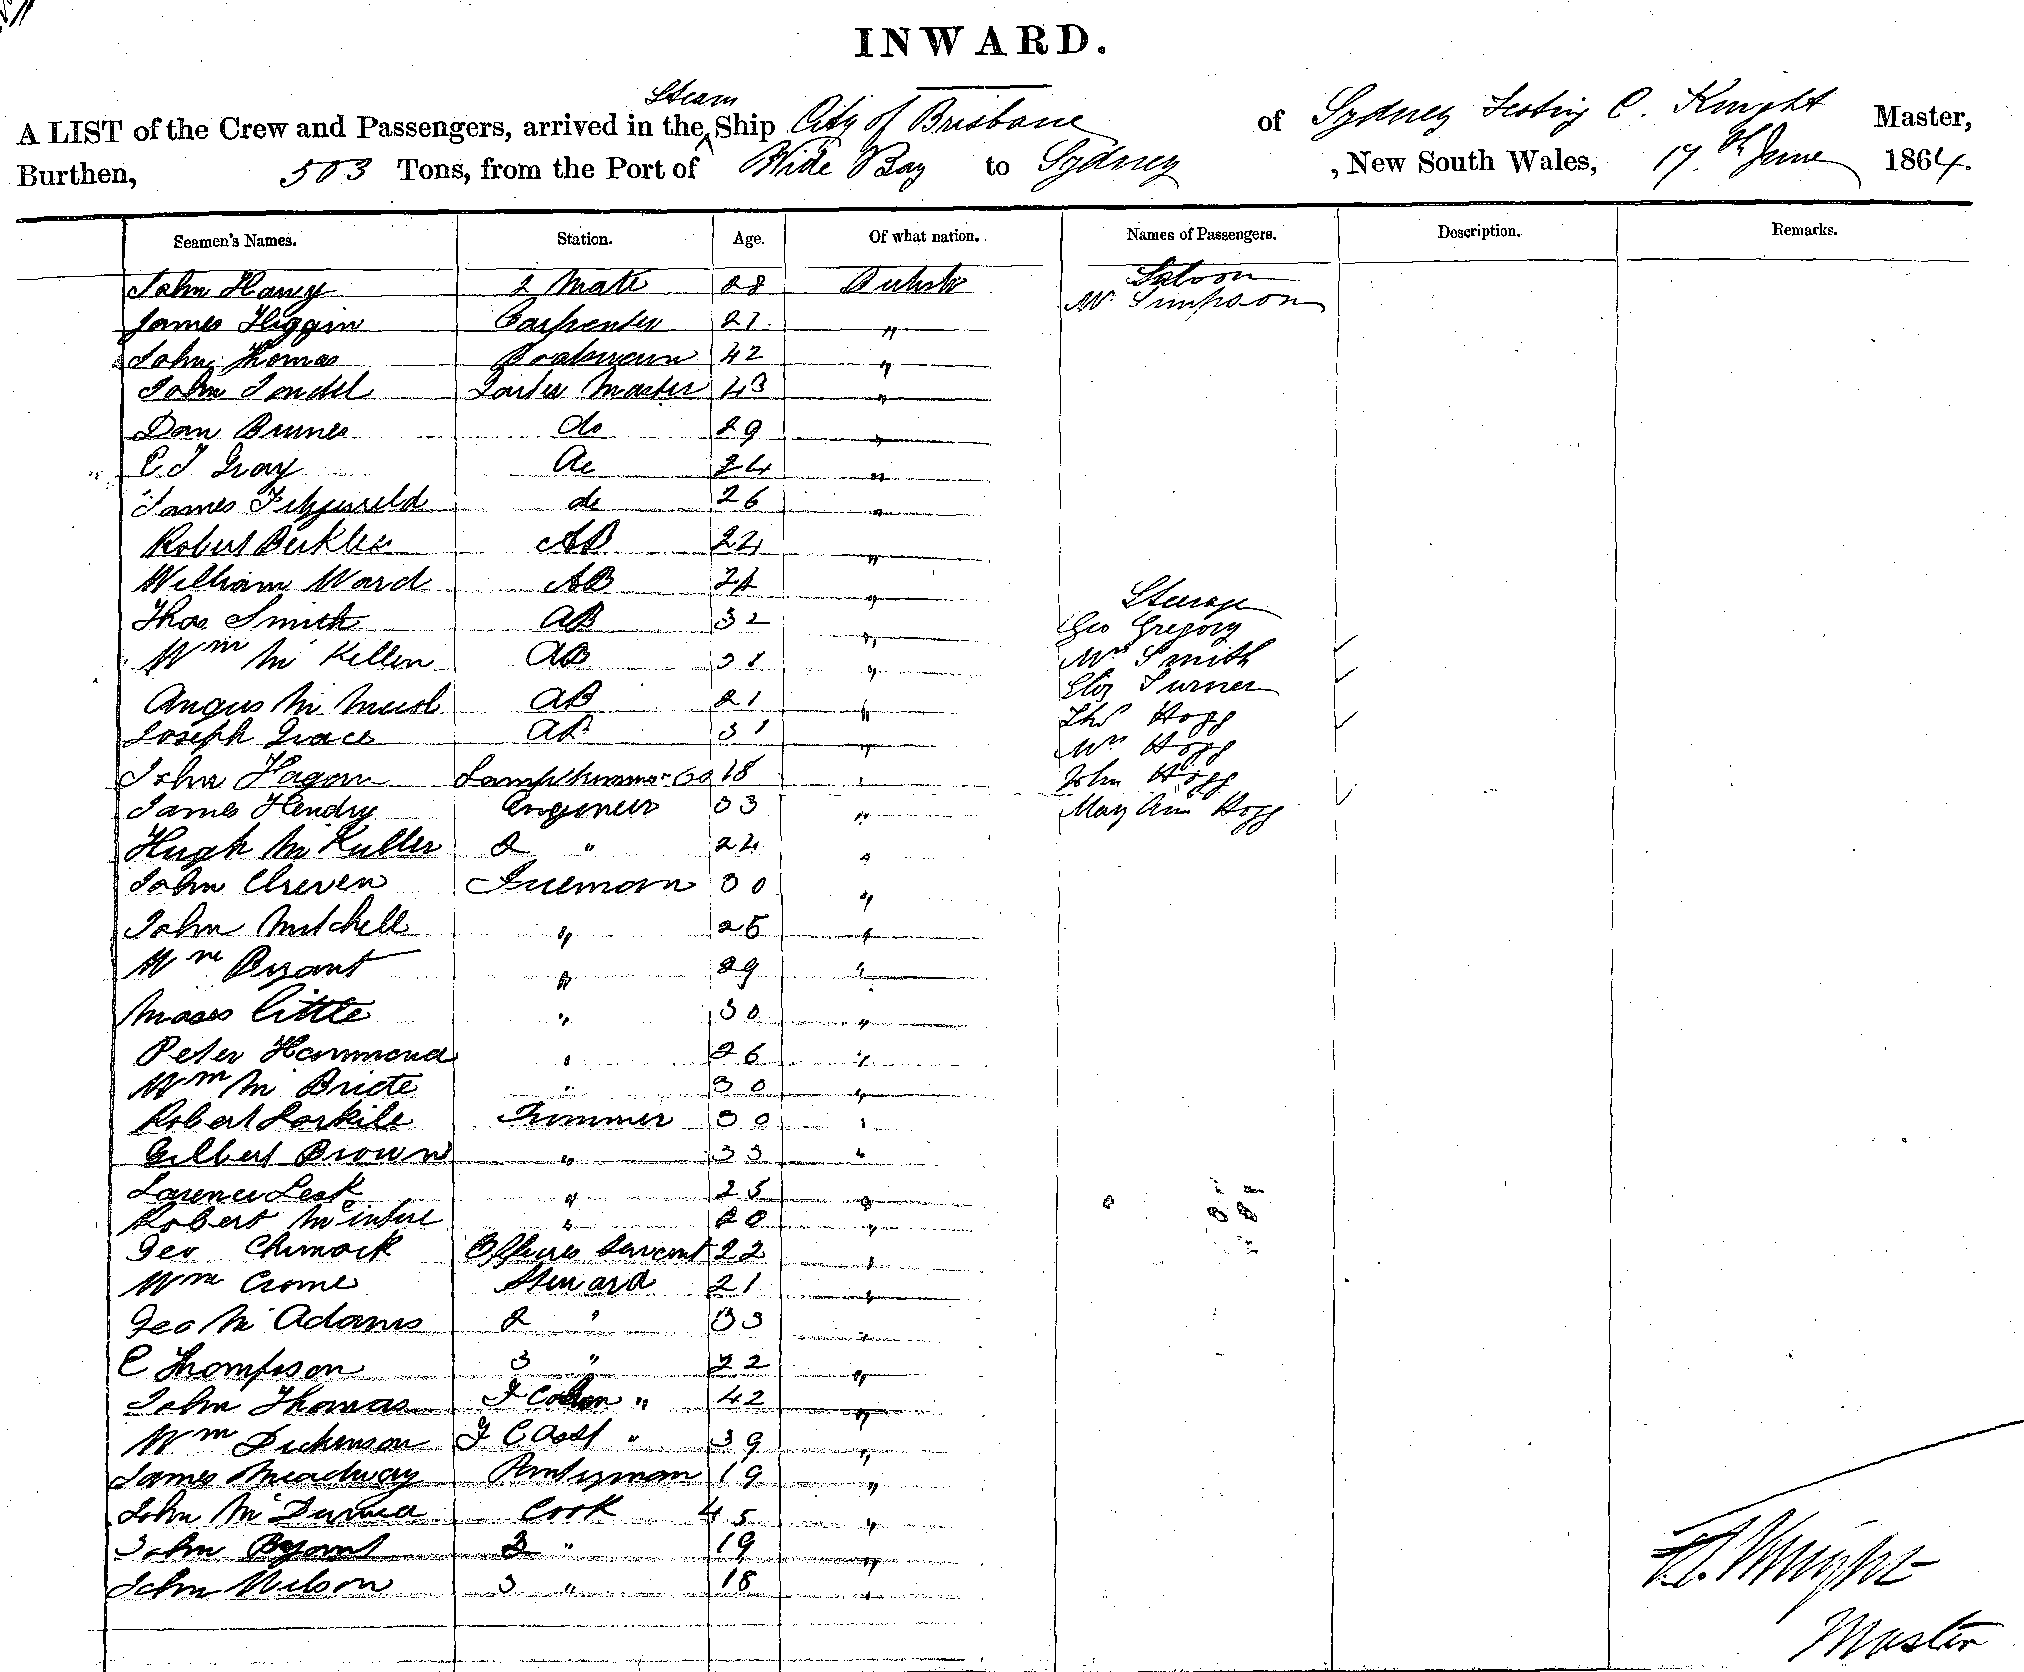 INWARD.
Steam
A LIST of the Crew and Passengers, arrived in the Ship City of Brisbane of Sydney C. Knight Master,
Burthen, 503 Tons, from the Port of Wide Bay to Sydney, New South Wales, 17th June 1864.
Seamen's Names. Station. Age. Of what nation. Names of Passengers. Description. Remarks.
John 2 Mate 28 Saloon
James Higgin Carpenter 21 " Mr Simpson
John Thomas 42 "
John Master 43 "
Dan do 29 "
C J Gray 24 "
James do 26 "
Robert AB 24 "
William Ward AB 24 "
Thos Smith AB 32 " Steerage
Wm Mc Killen AB " Geo Gregory
Angus Mc AB 21 " Mrs Smith
Joseph Grace AB 31 " Eliz Turner
John Hagan 18 " Thos Hogg
James Hendry Engineer 33 " Mrs Hogg
Hugh Mc 2 " 24 " John Hogg
John Fireman 30 " Mary Ann Hogg
John Mitchell " 25 "
Wm Bryant " 29 "
Moses Little " 30 "
Peter Hammond " 26 "
Wm Mc Bride " 30 "
Robert Trimmer 30 "
Gilbert Brown " 33 "
Larence Leak " 25 "
Robert McIntire " 20 "
Geo Servant 22 "
Wm Crome Steward 21 "
Geo Mc Adams 2 " 33 "
C Thompson 3 " 22 "
John Thomas " 42 "
Wm Dickenson " 39 "
James Meadway Pantryman 19 "
John Mc Cook 45 "
John Bryant 2 " 19 "
John Nelson 3 " 18 "
Knight
Master